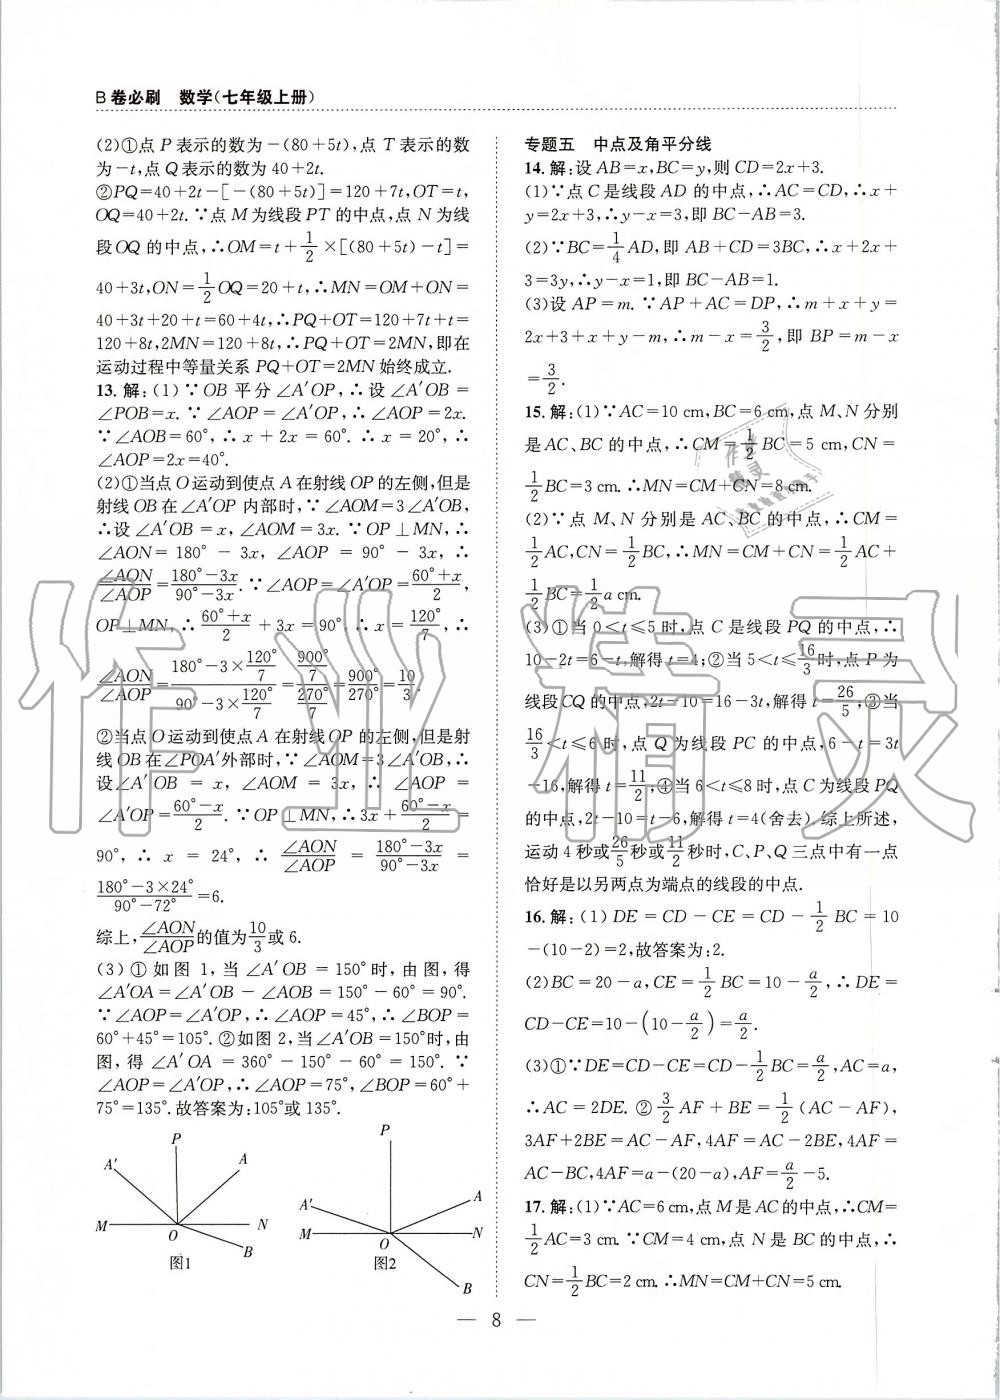 B卷必刷 数学(七年级上册)
(2)①点 P 表示的数为－(80＋5t),点 T 表示的数
为－t,点 Q 表示的数为 40＋2t.
②PQ=40＋2t－[－(80＋5t)]=120＋7t,OT=t,
OQ=40＋2t.∵点 M 为线段 PT 的中点,点 N 为线
段 OQ 的中点,∴OM=t＋1/2×[(80＋5t)－t]=
40＋3t,ON=1/2OQ=20＋t,∴MN=OM＋ON=
40＋3t＋20＋t=60＋4t,∴PQ＋OT=120＋7t＋t=
120＋8t,2MN=120＋8t,∴PQ＋OT=2MN,即在
运动过程中等量关系 PQ＋OT=2MN 始终成立.
13.解:(1)∵OB 平分∠A′OP,∴设∠A′OB=
∠POB=x.∵∠AOP=∠A′OP,∴∠AOP=2x.
∵∠AOB=60°,∴x＋2x=60°.∴x=20°,∴
∠AOP=2x=40°.
(2)①当点 O 运动到使点 A 在射线 OP 的左侧,但是
射线 OB 在∠A′OP 内部时,∵∠AOM=3∠A′OB,
∴设∠A′OB=x,∠AOM=3x.∵OP⊥MN,∴
∠AON=180°－3x,∠AOP=90°－3x,∴
∠AON/∠AOP=(180°－3x)/(90°－3x).∵∠AOP=∠A′OP=(60°＋x)/2,
OP⊥MN,∴(60°＋x)/2＋3x=90°,∴x=120°/7,∴
∠AON/∠AOP=(180°－3×120°/7)/(90°－3×120°/7)=(900°/7)/(270°/7)=900°/270°=10/3.
②当点 O 运动到使点 A 在射线 OP 的左侧,但是射
线 OB 在∠POA′外部时,∵∠AOM=3∠A′OB,∴
设∠A′OB=x,∠AOM=3x,∴∠AOP=
∠A′OP=(60°－x)/2.∵OP⊥MN,∴3x＋(60°－x)/2=
90°,∴x=24°,∴∠AON/∠AOP=(180°－3x)/(90°－3x)=
(180°－3×24°)/(90°－72°)=6.
综上,∠AON/∠AOP的值为10/3或6.
(3)①如图 1,当∠A′OB=150°时,由图,得
∠A′OA=∠A′OB－∠AOB=150°－60°=90°.
∵∠AOP=∠A′OP,∴∠AOP=45°,∴∠BOP=
60°＋45°=105°.②如图 2,当∠A′OB=150°时,由
图,得∠A′OA=360°－150°－60°=150°.∵
∠AOP=∠A′OP,∴∠AOP=75°,∠BOP=60°＋
75°=135°.故答案为:105°或 135°.
P
A′
A
M
O
N
B
图1
P
A′
A
M
O
N
B
图2
专题五 中点及角平分线
14.解:设 AB=x,BC=y,则 CD=2x＋3.
(1)∵点 C 是线段 AD 的中点,∴AC=CD,∴x＋
y=2x＋3,∴y－x=3,即 BC－AB=3.
(2)∵BC=1/4AD,即 AB＋CD=3BC,∴x＋2x＋
3=3y,∴y－x=1,即 BC－AB=1.
(3)设 AP=m.∵AP＋AC=DP,∴m＋x＋y=
2x＋3＋x＋y－m,∴m－x=3/2,即 BP=m－x
=3/2.
15.解:(1)∵AC=10 cm,BC=6 cm,点 M、N 分别
是 AC、BC 的中点,∴CM=1/2BC=5 cm,CN=
1/2BC=3 cm.∴MN=CM＋CN=8 cm.
(2)∵点 M、N 分别是 AC、BC 的中点,∴CM=
1/2AC,CN=1/2BC,∴MN=CM＋CN=1/2AC＋
1/2BC=1/2a cm.
(3)①当 0<t≤5 时,点 C 是线段 PQ 的中点,∴
10－2t=6－t,解得 t=4;②当 5<t≤16/3时,点 P 为
线段 CQ 的中点,2t－10=16－3t,解得 t=26/5;③当
16/3<t≤6 时,点 Q 为线段 PC 的中点,6－t=3t
－16,解得 t=11/2;④当 6<t≤8 时,点 C 为线段 PQ
的中点,2t－10=t－6,解得 t=4(舍去).综上所述,
运动 4 秒或26/5秒或11/2秒时,C、P、Q 三点中有一点
恰好是以另两点为端点的线段的中点.
16.解:(1)DE=CD－CE=CD－1/2BC=10
－(10－2)=2,故答案为:2.
(2)BC=20－a,CE=1/2BC=10－a/2,∴DE=
CD－CE=10－(10－a/2)=a/2.
(3)①∵DE=CD－CE=CD－1/2BC=a/2,AC=a,
∴AC=2DE.②3/2AF＋BE=1/2(AC－AF),
3AF＋2BE=AC－AF,4AF=AC－2BE,4AF=
AC－BC,4AF=a－(20－a),AF=a/2－5.
17.解:(1)∵AC=6 cm,点 M 是 AC 的中点,∴CM=
1/2AC=3 cm.∵CM=4 cm,点 N 是 BC 的中点,∴
CN=1/2BC=2 cm.∴MN=CM＋CN=5 cm.
— 8 —
作业精灵